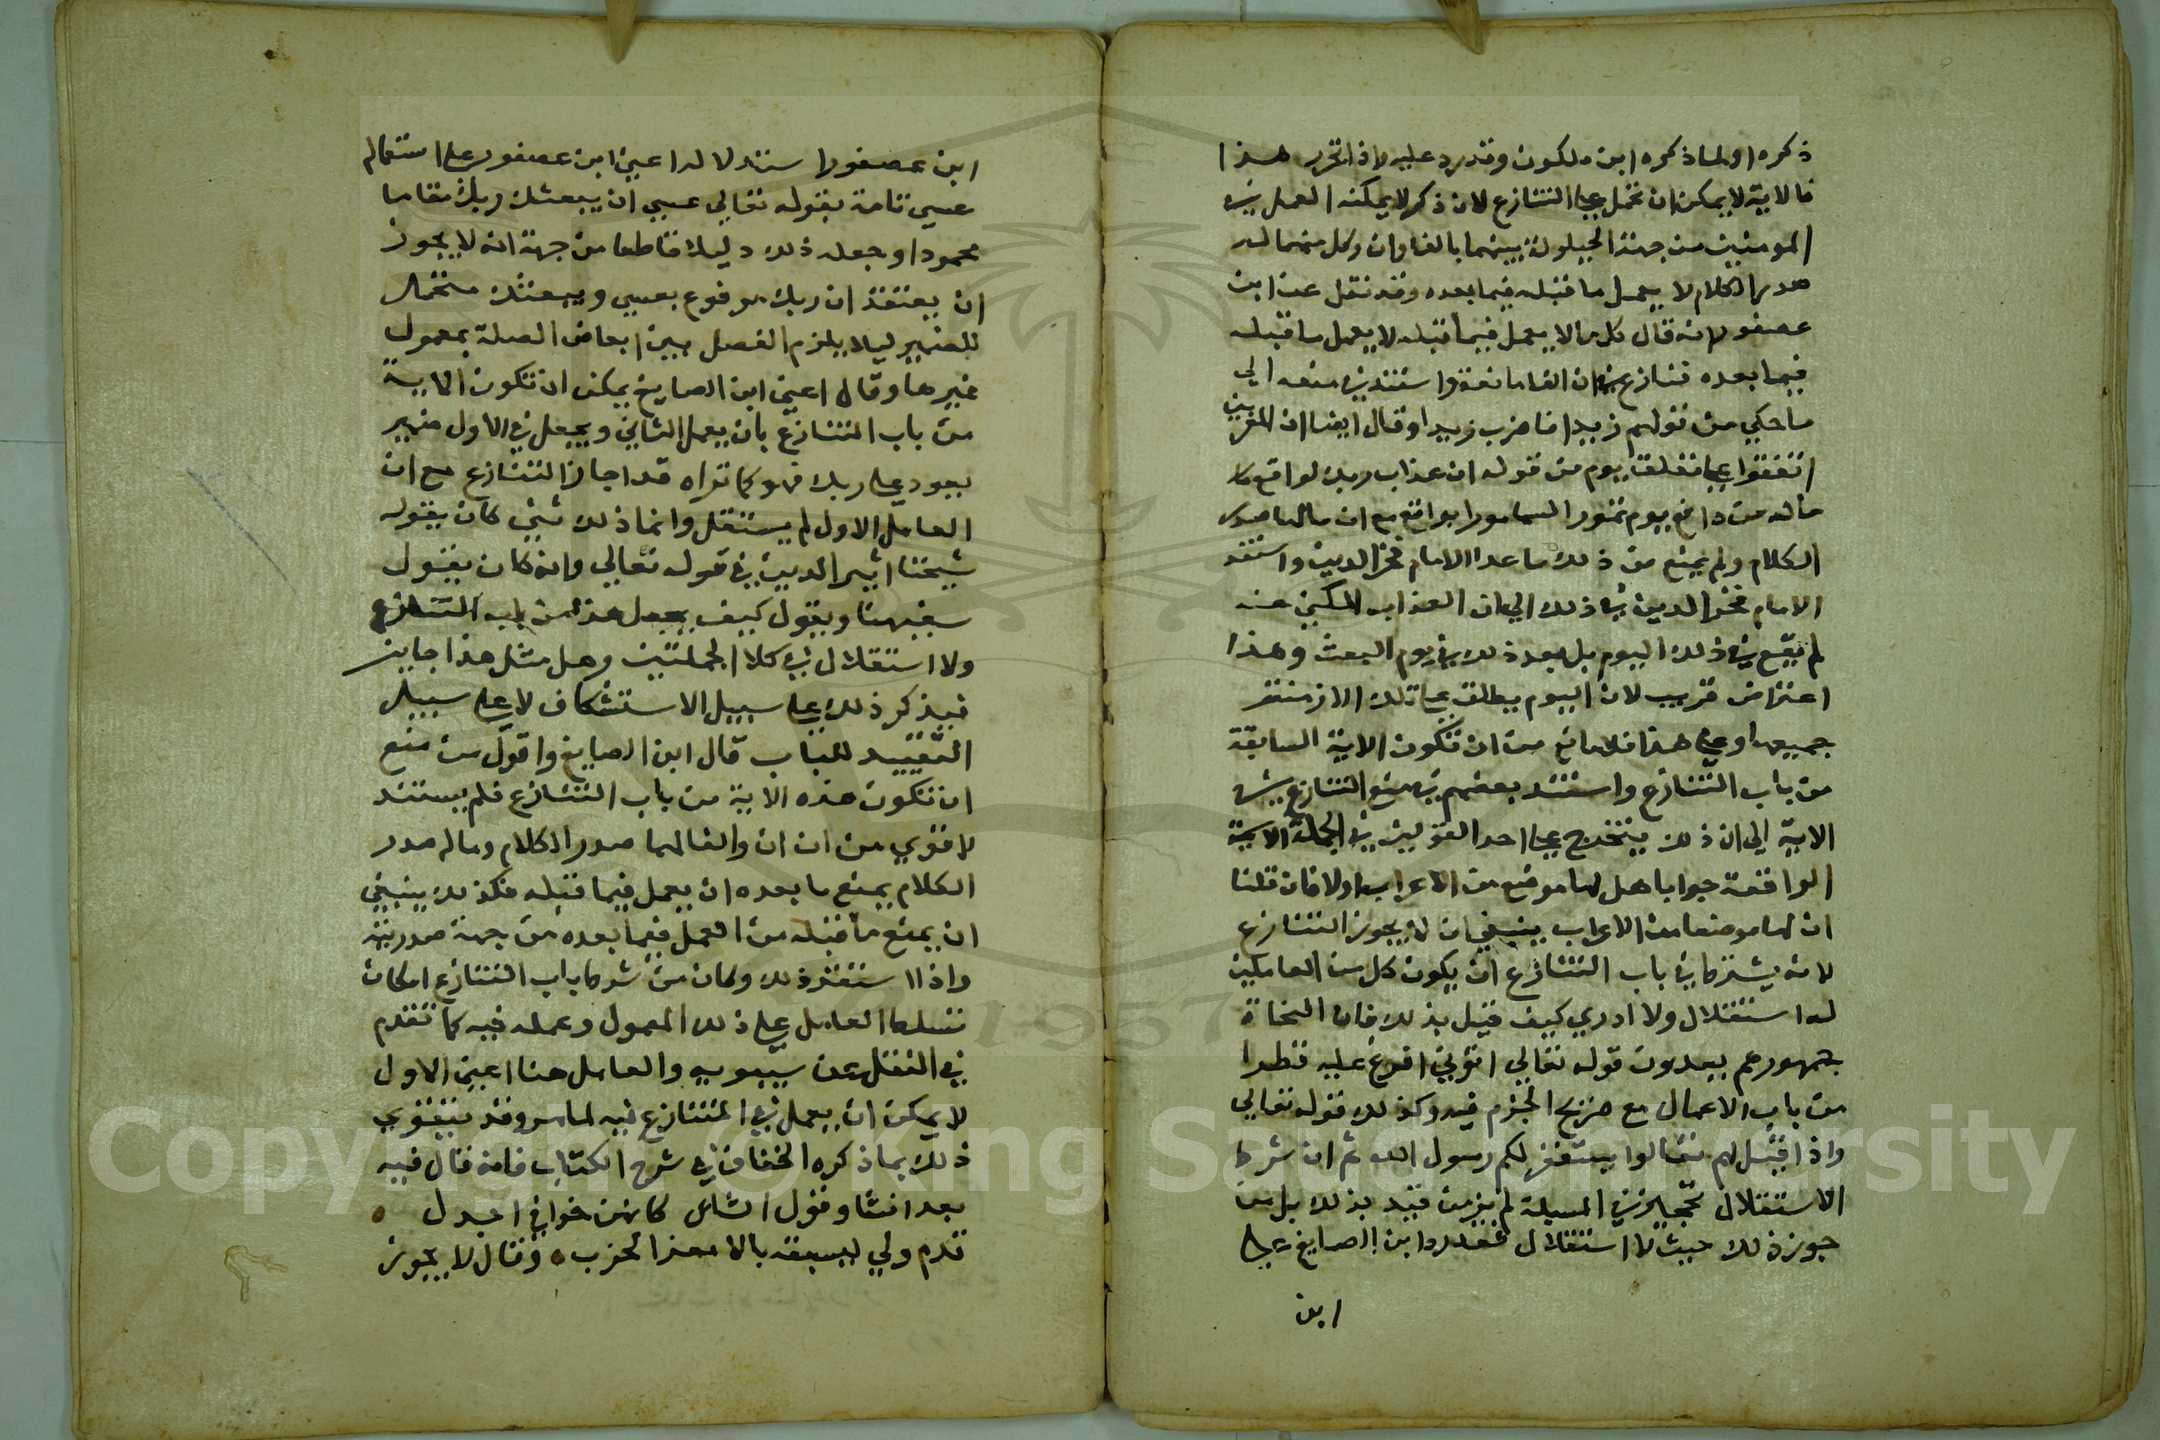 ذكره اولما ذكره ابن ملكون وقد رد عليه واذا تقرر هذا
فالاية لا يمكن ان تحمل على التنازع لان ذكر لا يمكنه العمل في
المومنين من جهة الحيلولة بينهما بالفا وان وكل منهما له
صدر الكلام لا يعمل ما قبله فيما بعده وقد نقل عن ابن
عصفور انه قال كل ما لا يعمل فيما قبله لا يعمل ما قبله
فيما بعده تنازع في ان الفا مانعة واستند في منعه الي
ما حكي من قولهم زيدا فاضرب زيدا وقال ايضا ان المعربين
اتفقوا على تعلق يوم من قوله ان عذاب ربك لواقع ما
ماله من دافع يوم تمور السما مورا بواقع مع ان ما لها صدر
الكلام ولم يمنع من ذلك ما عدا الامام فخر الدين واستند
الامام فخر الدين في ذلك الي ان العذاب المكني عنه
لم يقع في ذلك اليوم بل بعد ذلك في يوم البعث وهذا
اعتراض قريب لان اليوم يطلق على تلك الازمنة
جميعها وعلى هذا فلا مانع من ان تكون الاية السابقة
من باب التنازع واستند بعضهم في منع التنازع في
الاية الي ان ذلك يتخرج على احد القولين في الجملة الاسمية
الواقعة جوابا هل لها موضع من الاعراب اولا فان قلنا
ان لها موضعا من الاعراب ينبغي ان لا يجوز التنازع
لانه يشترط في باب التنازع ان يكون كل من العاملين
له استقلال ولا ادري كيف قيل بذلك فان النحاة
جمهورهم يعدون قوله تعالي اتوني افرغ عليه قطرا
من باب الاعمال مع صريح الجزم فيه وكذلك قوله تعالي
واذا قيل لهم تعالوا يستغفر لكم رسول الله ثم ان شرط
الاستقلال في المسيلة لم من قيد بذلك بل من
جوز ذلك حيث لا استقلال فقد رد ابن الصايغ على
ابن
ابن عصفور استدلاله اعني ابن عصفور على استعمال
عسي تامة بقوله تعالي عسي ان يبعثك ربك مقاما
محمودا وجعله ذلك دليلا قاطعا من جهة انه لا يجوز
ان يعتقد ان ربك مرفوع بعسي ويبعثك متحمل
للضمير ليلا يلزم الفصل بين ابعاض الصلة بمعمول
غيرها وقال اعني ابن الصايغ يمكن ان تكون الاية
من باب التنازع بان يعمل الثاني ويجعل في الاول ضمير
يعود على ربك فهو كما تراه قد اجاز التنازع مع ان
العامل الاول لم يستقل وانما ذلك شي كان يقوله
شيخنا اثير الدين في قوله تعالي وانه كان يقول
سفيهنا ويقول كيف يجعل هذا من باب التنازع
ولا استقلال في كلا الجملتين وهل مثل هذا جايز
فيذكر ذلك على سبيل الاستشكاف لا على سبيل
التقييد للباب قال ابن الصايغ واقول من منع
ان تكون هذه الاية من باب التنازع فلم يستند
لاقوي من ان ان والفا لهما صدر الكلام وما له صدر
الكلام يمنع ما بعده ان يعمل فيما قبله فكذلك ينبغي
ان يمنع ما قبله من العمل فيما بعده من جهة صدريته
واذا استقر ذلك وكان من شرط باب التنازع امكان
تسلط العامل على ذلك المعمول وعمله فيه كما تقدم
في النقل عن سيبويه والعامل هنا اعني الاول
لا يمكن ان يعمل في المتنازع فيه لما مر وقد يتقوي
ذلك بما ذكره الخفاف في شرح الكتاب فانه قال فيه
بعد انشا وقول الشاعر كانهن خوافي اجدل ه
قدم ولي ليسبقه بالامعز الخرب ه وقال لا يجوز